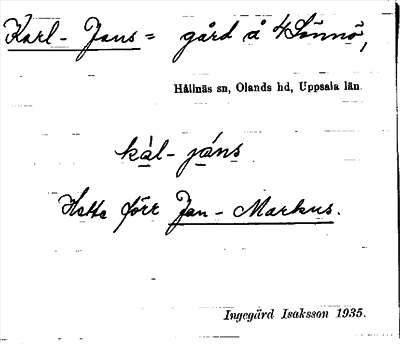 Karl-Jans = gård å Sönnö,
Hållnäs sn, Olands hd, Uppsala län.
kàl-jáns
Hette förr Jan-Markus.
Ingegärd Isaksson 1935.